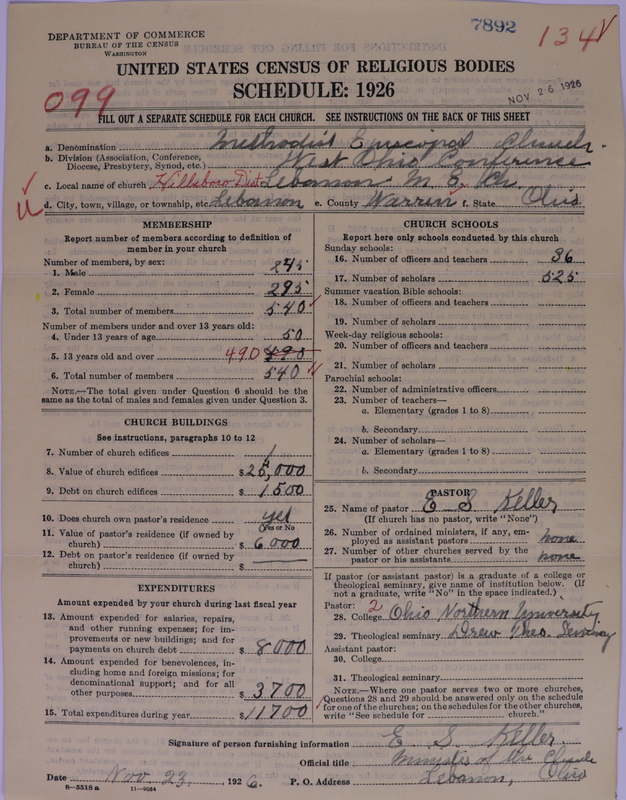 7892
134
DEPARTMENT OF COMMERCE
BUREAU OF THE CENSUS
WASHINGTON
UNITED STATES CENSUS OF RELIGIOUS BODIES
SCHEDULE: 1926
NOV 26 1926
099
FILL OUT A SEPARATE SCHEDULE FOR EACH CHURCH. SEE INSTRUCTIONS ON THE BACK OF THIS SHEET
a. Denomination Methodist Episcopal Church.
b. Division (Association, Conference, Diocese, Presbytery, Synod, etc.) West Ohio Conference
c. Local name of church Hillsboro Dist Lebanon M. E. Ch.
d. City, town, village, or township, etc. Lebanon e. County Warren f. State Ohio
MEMBERSHIP
Report number of members according to definition of
member in your church
Number of members, by sex:
1. Male 245
2. Female 295
3. Total number of members 540
Number of members under and over 13 years old:
4. Under 13 years of age 50
5. 13 years old and over 490 490
6. Total number of members 540
NOTE.—The total given under Question 6 should be the
same as the total of males and females given under Question 3.
CHURCH BUILDINGS
See instructions, paragraphs 10 to 12
7. Number of church edifices 1
8. Value of church edifices $25,000
9. Debt on church edifices $1500
10. Does church own pastor's residence yes
Yes or No
11. Value of pastor's residence (if owned by
church) $6000
12. Debt on pastor's residence (if owned by
church) $
EXPENDITURES
Amount expended by your church during last fiscal year
13. Amount expended for salaries, repairs,
and other running expenses; for im-
provements or new buildings; and for
payments on church debt $8000
14. Amount expended for benevolences, in-
cluding home and foreign missions; for
denominational support; and for all
other purposes $3700
15. Total expenditures during year $11700
CHURCH SCHOOLS
Report here only schools conducted by this church
Sunday schools:
16. Number of officers and teachers 36
17. Number of scholars 525
Summer vacation Bible schools:
18. Number of officers and teachers
19. Number of scholars
Week-day religious schools:
20. Number of officers and teachers
21. Number of scholars
Parochial schools:
22. Number of administrative officers
23. Number of teachers—
a. Elementary (grades 1 to 8)
b. Secondary
24. Number of scholars—
a. Elementary (grades 1 to 8)
b. Secondary
PASTOR
25. Name of pastor E S Keller
(If church has no pastor, write "None")
26. Number of ordained ministers, if any, em-
ployed as assistant pastors none
27. Number of other churches served by the
pastor or his assistants none
If pastor (or assistant pastor) is a graduate of a college or
theological seminary, give name of institution below. (If
not a graduate, write "No" in the space indicated.)
Pastor: 2
28. College Ohio Northern University
29. Theological seminary Drew Theo. Seminary
Assistant pastor:
30. College
31. Theological seminary
NOTE.—Where one pastor serves two or more churches,
Questions 28 and 29 should be answered only on the schedule
for one of the churches; on the schedules for the other churches,
write "See schedule for church."
Signature of person furnishing information E. S. Keller
Official title Minister of the Church
Date Nov. 23, 1926. P. O. Address Lebanon, Ohio
8—5515 a 11—9084